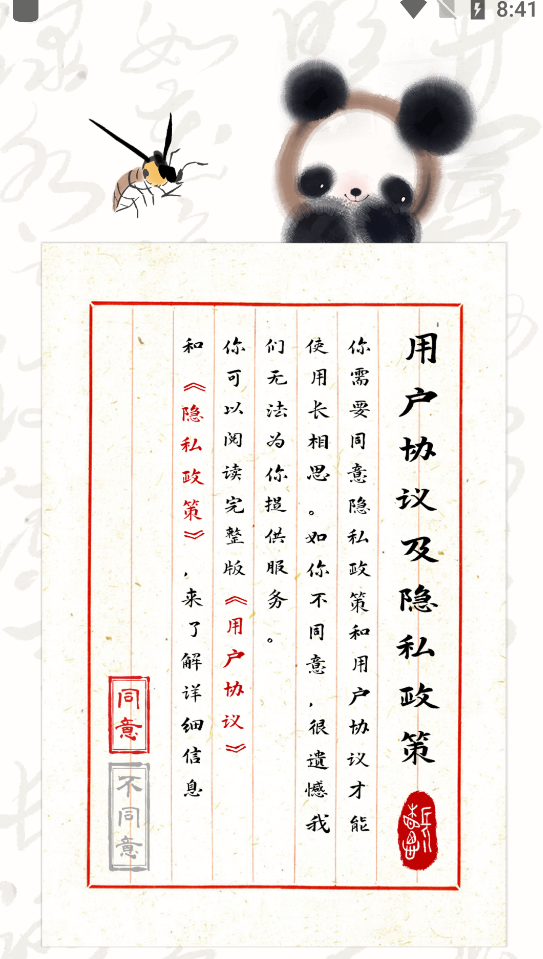 8:41
用户协议及隐私政策
你需要同意隐私政策和用户协议才能
使用长相思。如你不同意,很遗憾我
们无法为你提供服务。
你可以阅读完整版《用户协议》
和《隐私政策》,来了解详细信息
同意
不同意